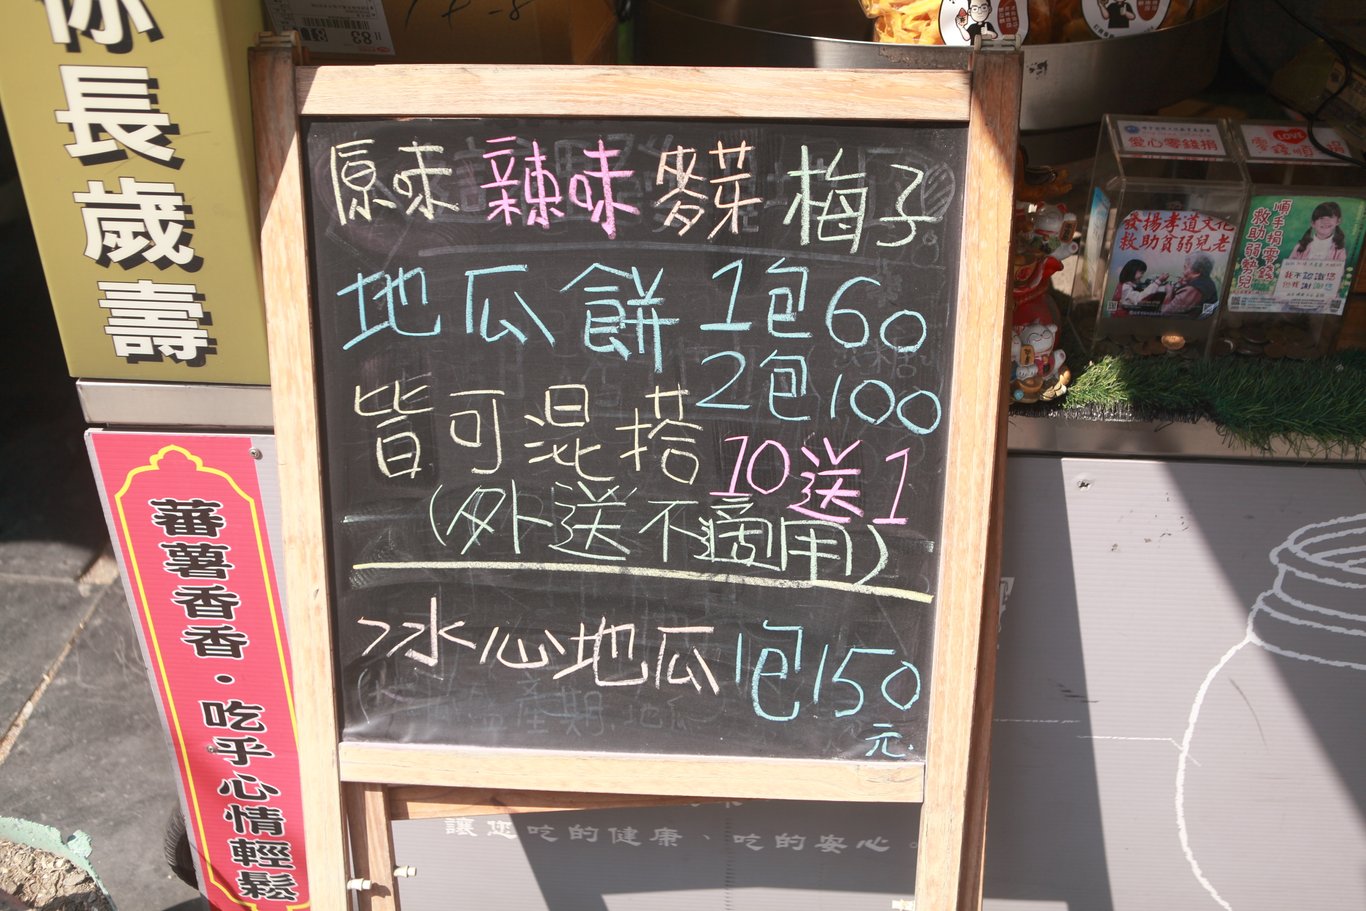 你長歲壽
原味 辣味 麥芽 梅子
地瓜餅 1包60
2包100
皆可混搭 10送1
(外送不適用)
冰心地瓜 1包150
元.
蕃薯香香・吃乎心情輕鬆
讓您吃的健康、吃的安心。
愛心零錢捐
發揚孝道文化
救助貧弱兒老
LOVE
順手捐零錢
救助弱勢兒